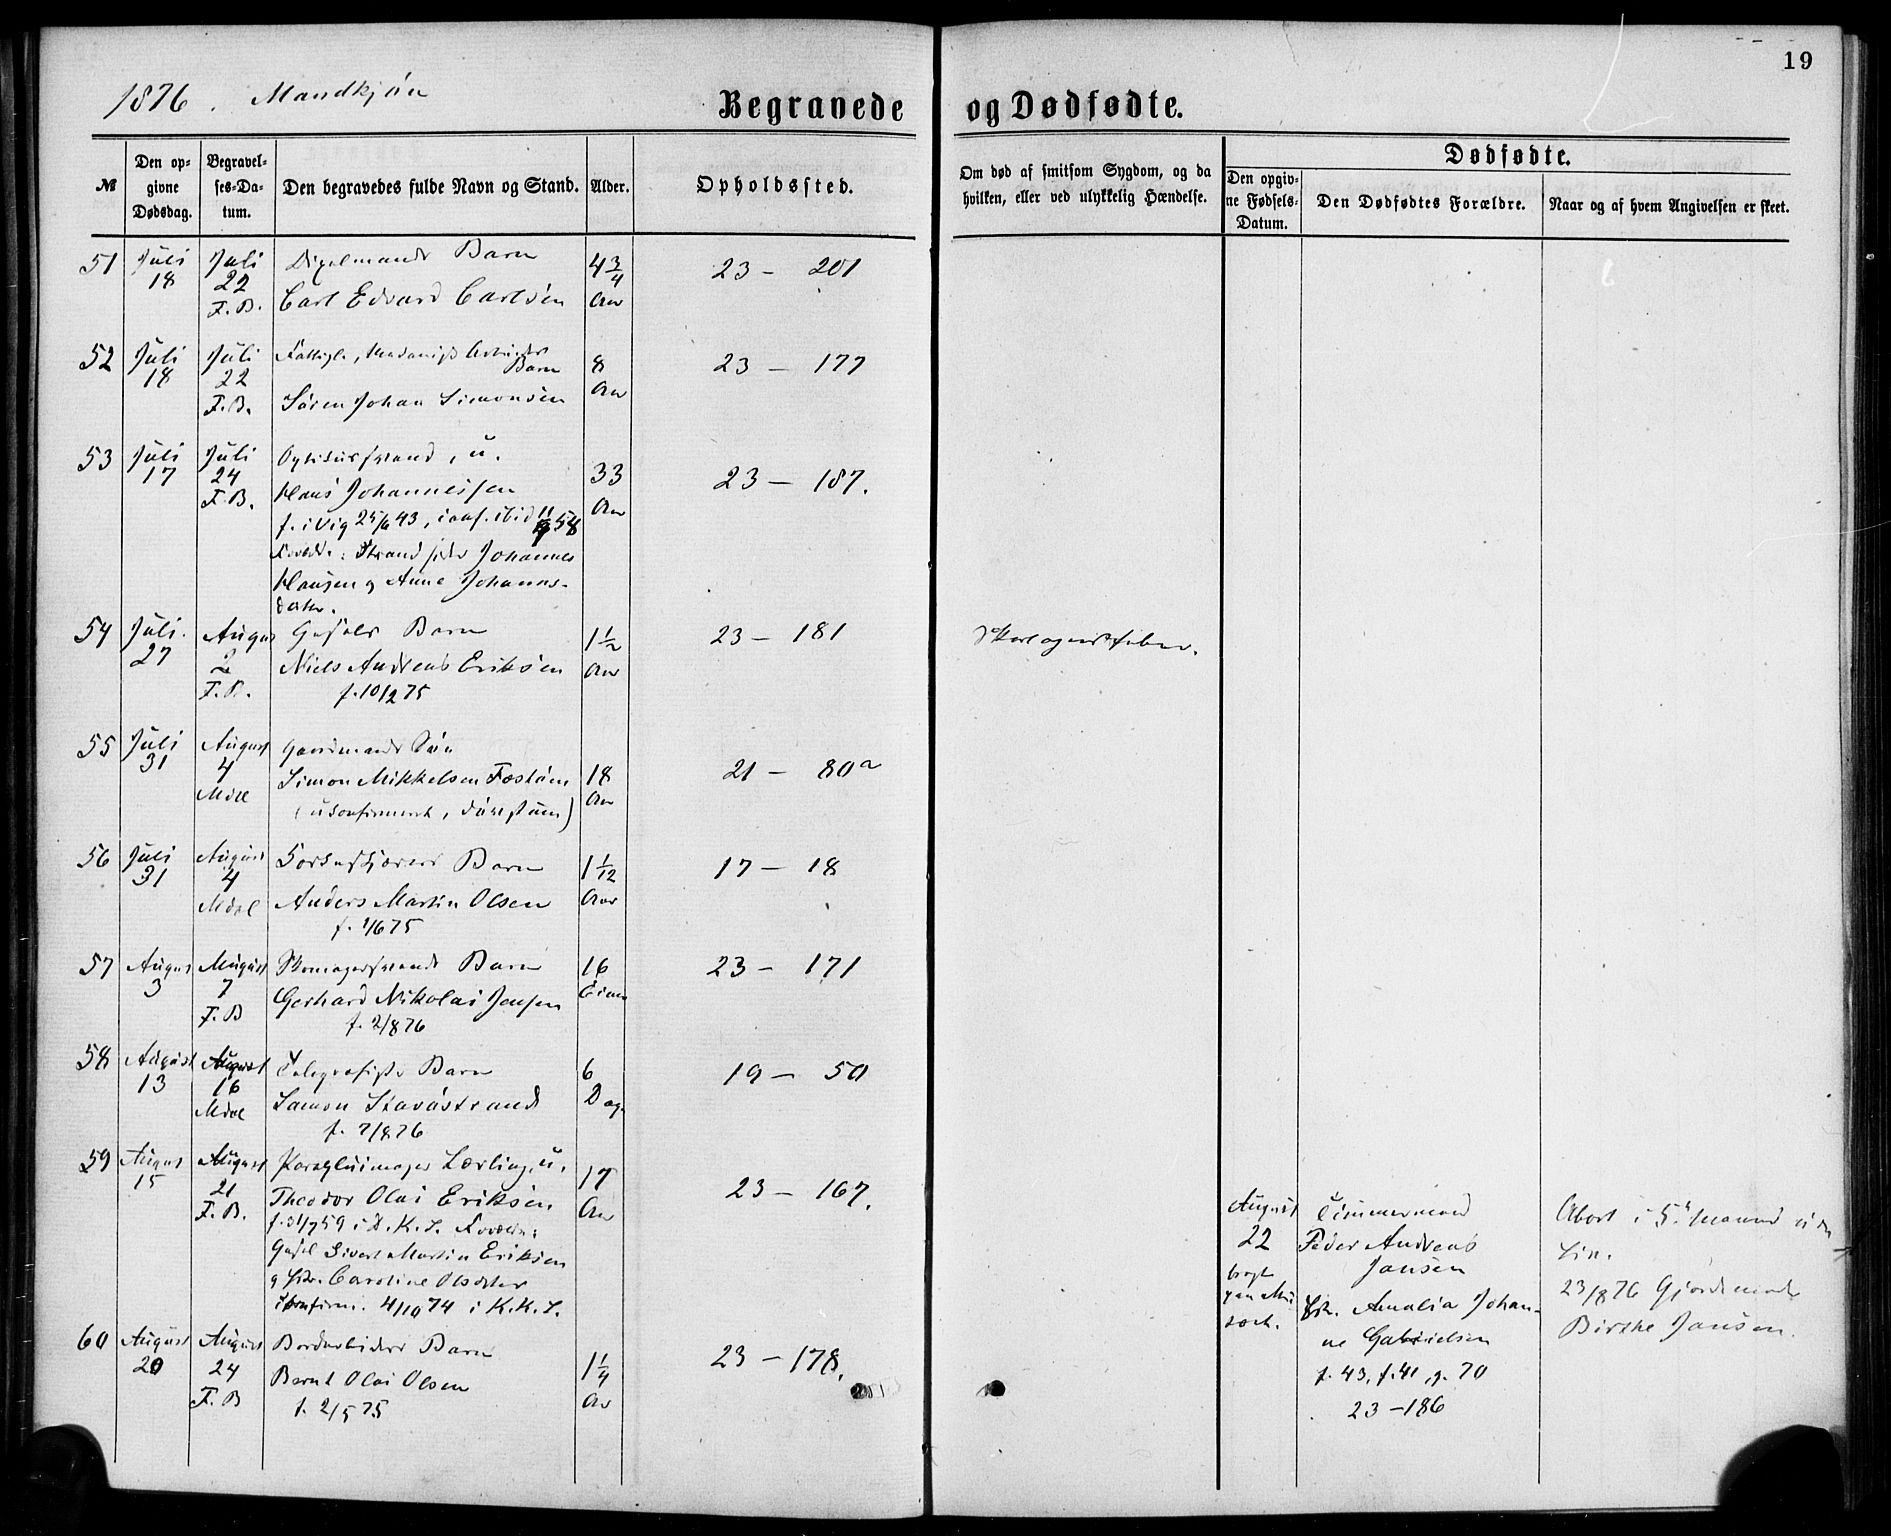 19
1876. Mandkjøn
Begravede og Dødfødte.
№
Den op-
givne
Dødsdag.
Begravel-
ses-Da-
tum.
Den begravedes fulde Navn og Stand.
Alder.
Opholdssted.
Om død af smitsom Sygdom, og da
hvilken, eller ved ulykkelig Hændelse.
Dødfødte.
Den opgiv-
ne Fødsels-
Datum.
Den Dødfødtes Forældre.
Naar og af hvem Angivelsen er skeet.
51 Juli 18 Juli 22 F. B. Barn
Carl Edvard Carlsen 4 3/4 Aar 23 - 201
52 Juli 18 Juli 22 F. B. Barn
Søren Johan Simonsen 8 Aar 23 - 177
53 Juli 17 Juli 24 F. B. , u.
Hans Johannessen 33 Aar 23 - 187.
f. i Vig 25/6 43, conf. ibid 58
Forældre: Strandsidder Johannes
Hansen og Anne Johanns-
datter.
54 Juli. 27 August 2 F. B. Gasels Barn
Niels Andreas Eriksen 1 1/2 Aar 23 - 181 Skarlagensfeber.
f. 10/2 75
55 Juli 31 August 4 Mdal Gaardmands Søn
Simon Mikkelsen Fostøm 18 Aar 21 - 80a
(ukonfirmeret, døvstum)
56 Juli 31 August 4 Mdal Barn
Anders Martin Olsen 1 1/12 Aar 17 - 18
f. 1/6 75
57 August 3 August 7 F. B Skomagersvends Barn
Gerhard Nikolai Jensen 16 Timer 23 - 171
f. 2/8 76
58 August 13 August 16 Mdal Telegrafists Barn
Samson Stavøstrand 6 Dage 19 - 50
f. 7/8 76
59 August 15 August 21 F. B. Lærling, u.
Theodor Olai Eriksen 17 Aar 23 - 167.
f. 31/7 59 i D. K. S. Forældre:
Gasel Sivert Martin Eriksen
og Hstr. Caroline Olsdatter
confirm. 4/10 74 i K. K. S.
60 August 20 August 24 F. B Bordarbeiders Barn
Bernt Olai Olsen 1 1/4 Aar 23 - 178.
f. 2/5 75
August
22
Timmermand
Peder Andreas
Jansen
Hstr. Amalia Johan-
ne Gabrielsen
f. 43, f. 41, g. 70
23 - 186
Abort i 5te Maaned uden
Liv.
23/8 76 Gjordemoder
Birthe Jansen.